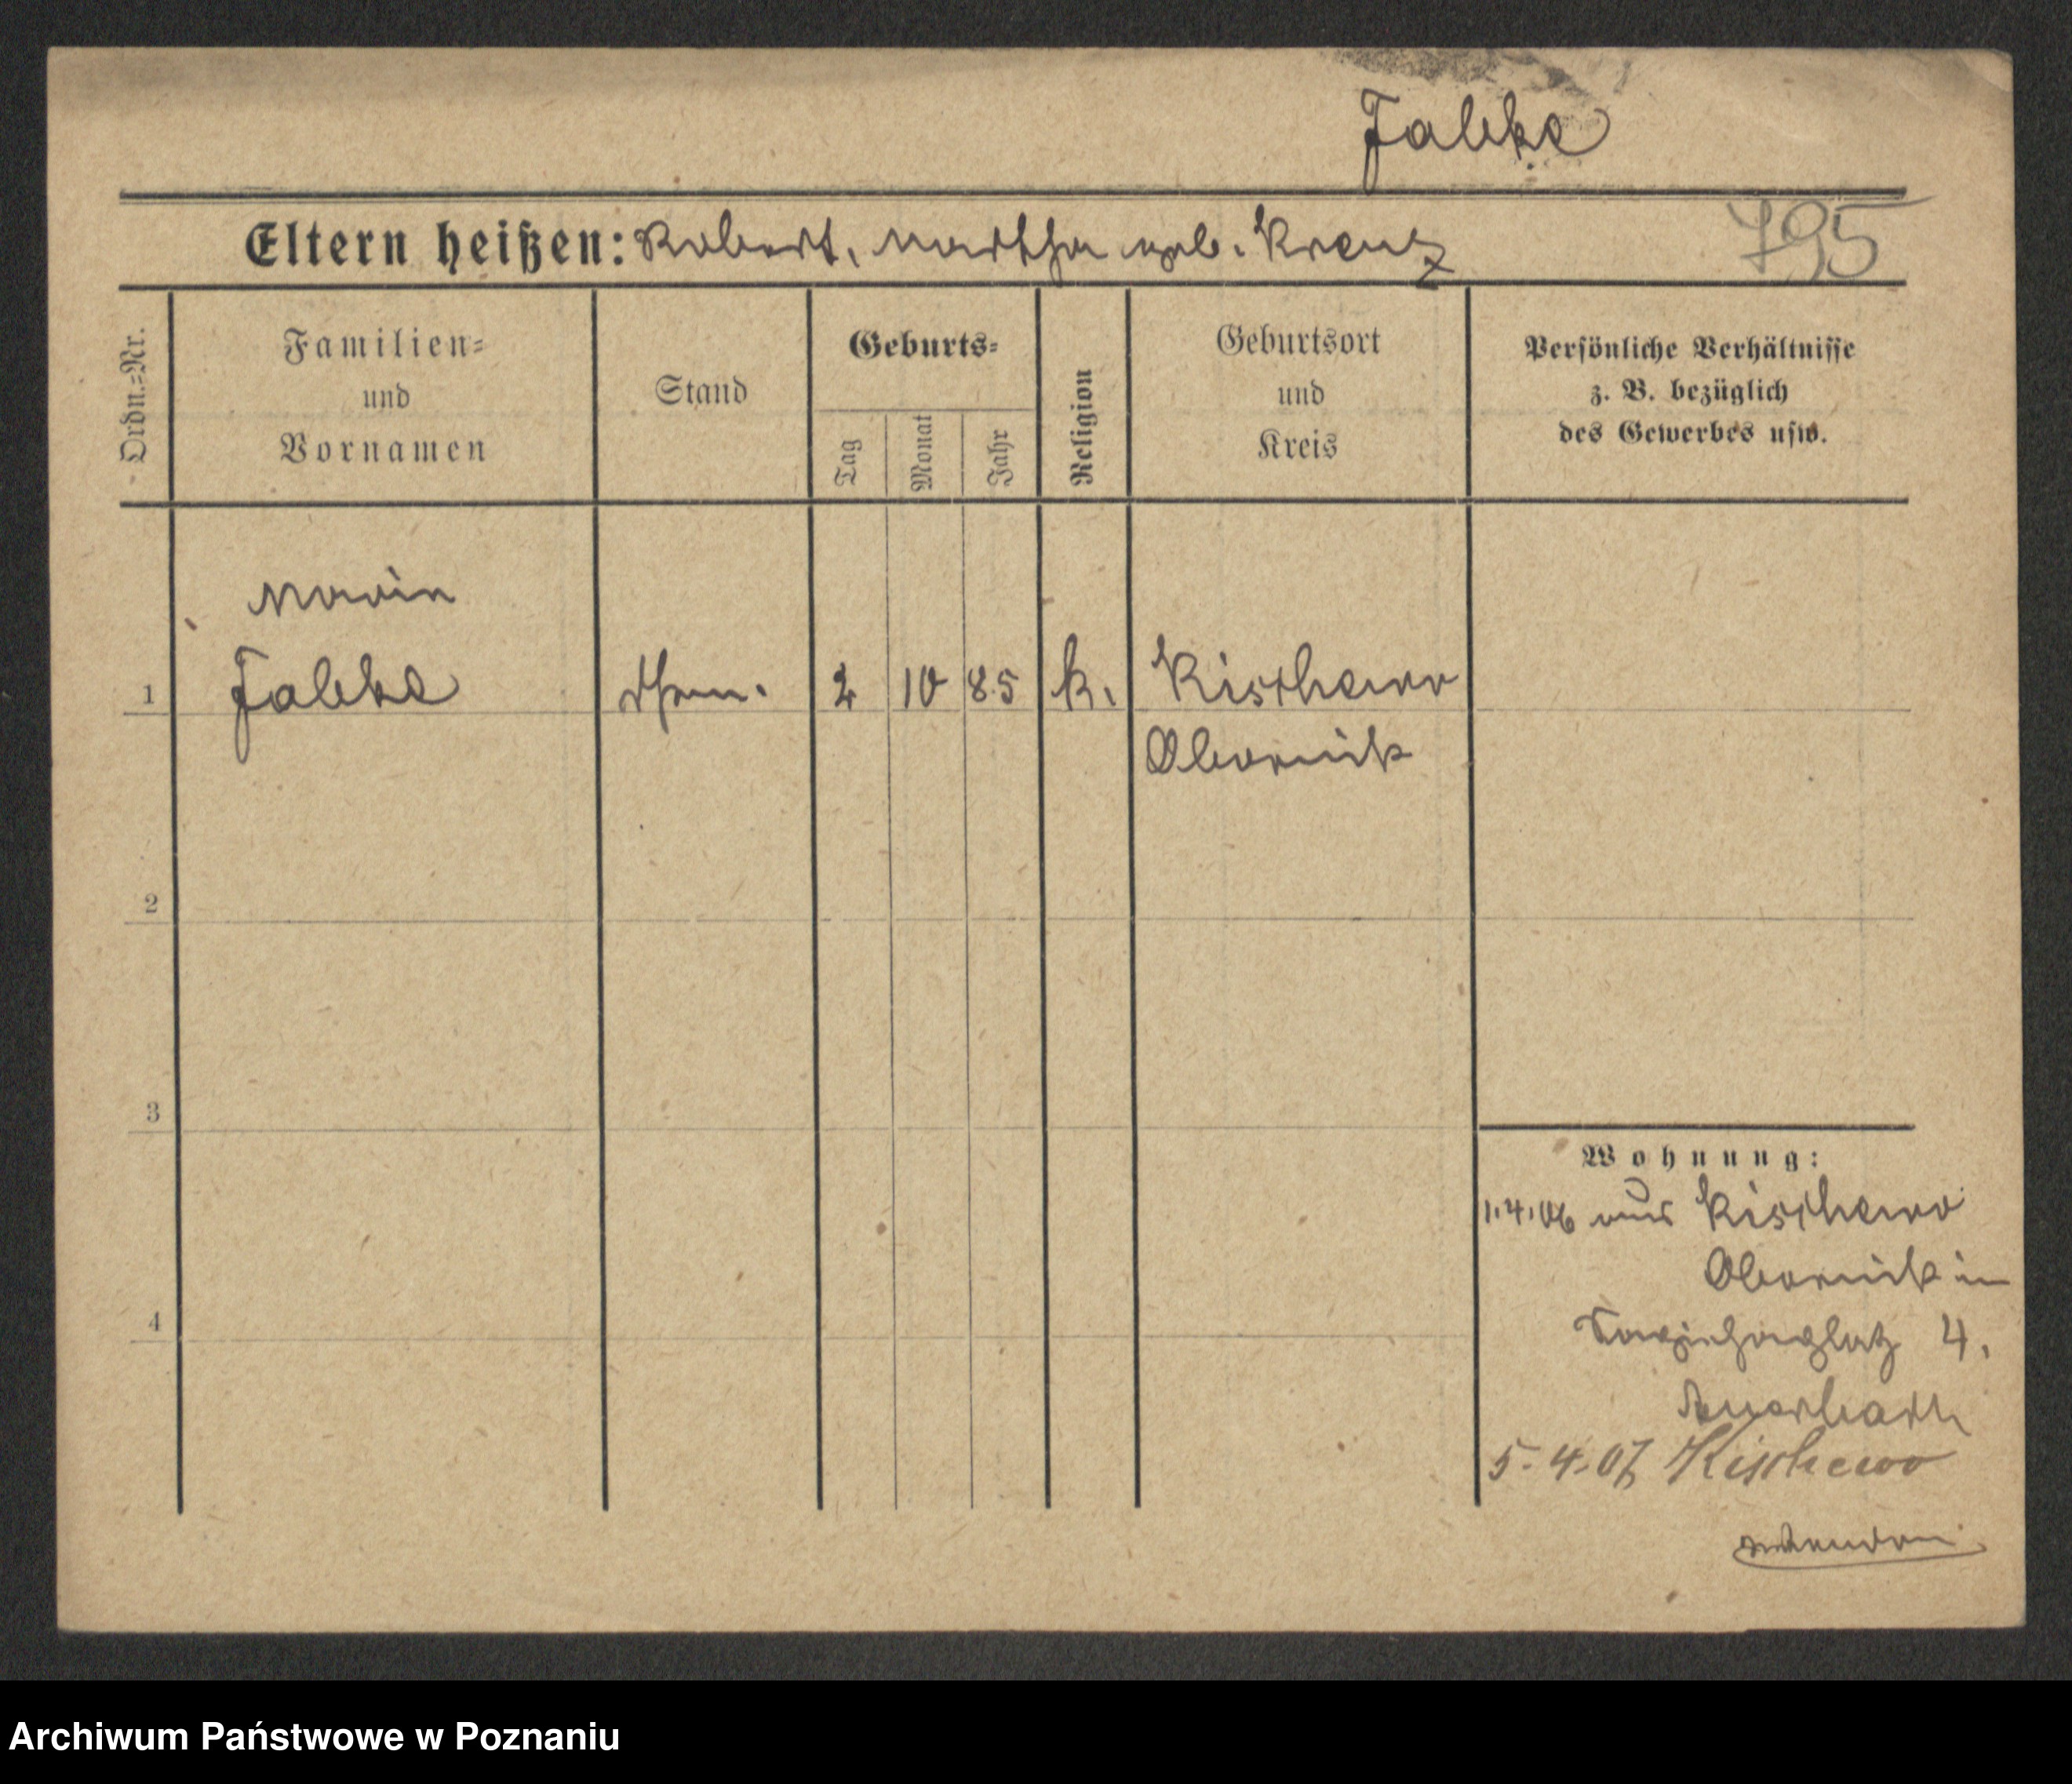 Jabke
Eltern heißen: Robert, Martha geb. Kreuz
795
Ordn.=Nr.
Familien=
und
Vornamen
Stand
Geburts=
Tag
Monat
Jahr
Religion
Geburtsort
und
Kreis
Persönliche Verhältnisse
z. B. bezüglich
des Gewerbes usw.
Maria
1 Jabke 2 10 85 k. Kischewo
Obornik
2
3
4
Wohnung:
1.4.06 aus Kischewo
Obornik in
Sapiehaplatz 4.
5.4.07 Kischewo
Archiwum Państwowe w Poznaniu